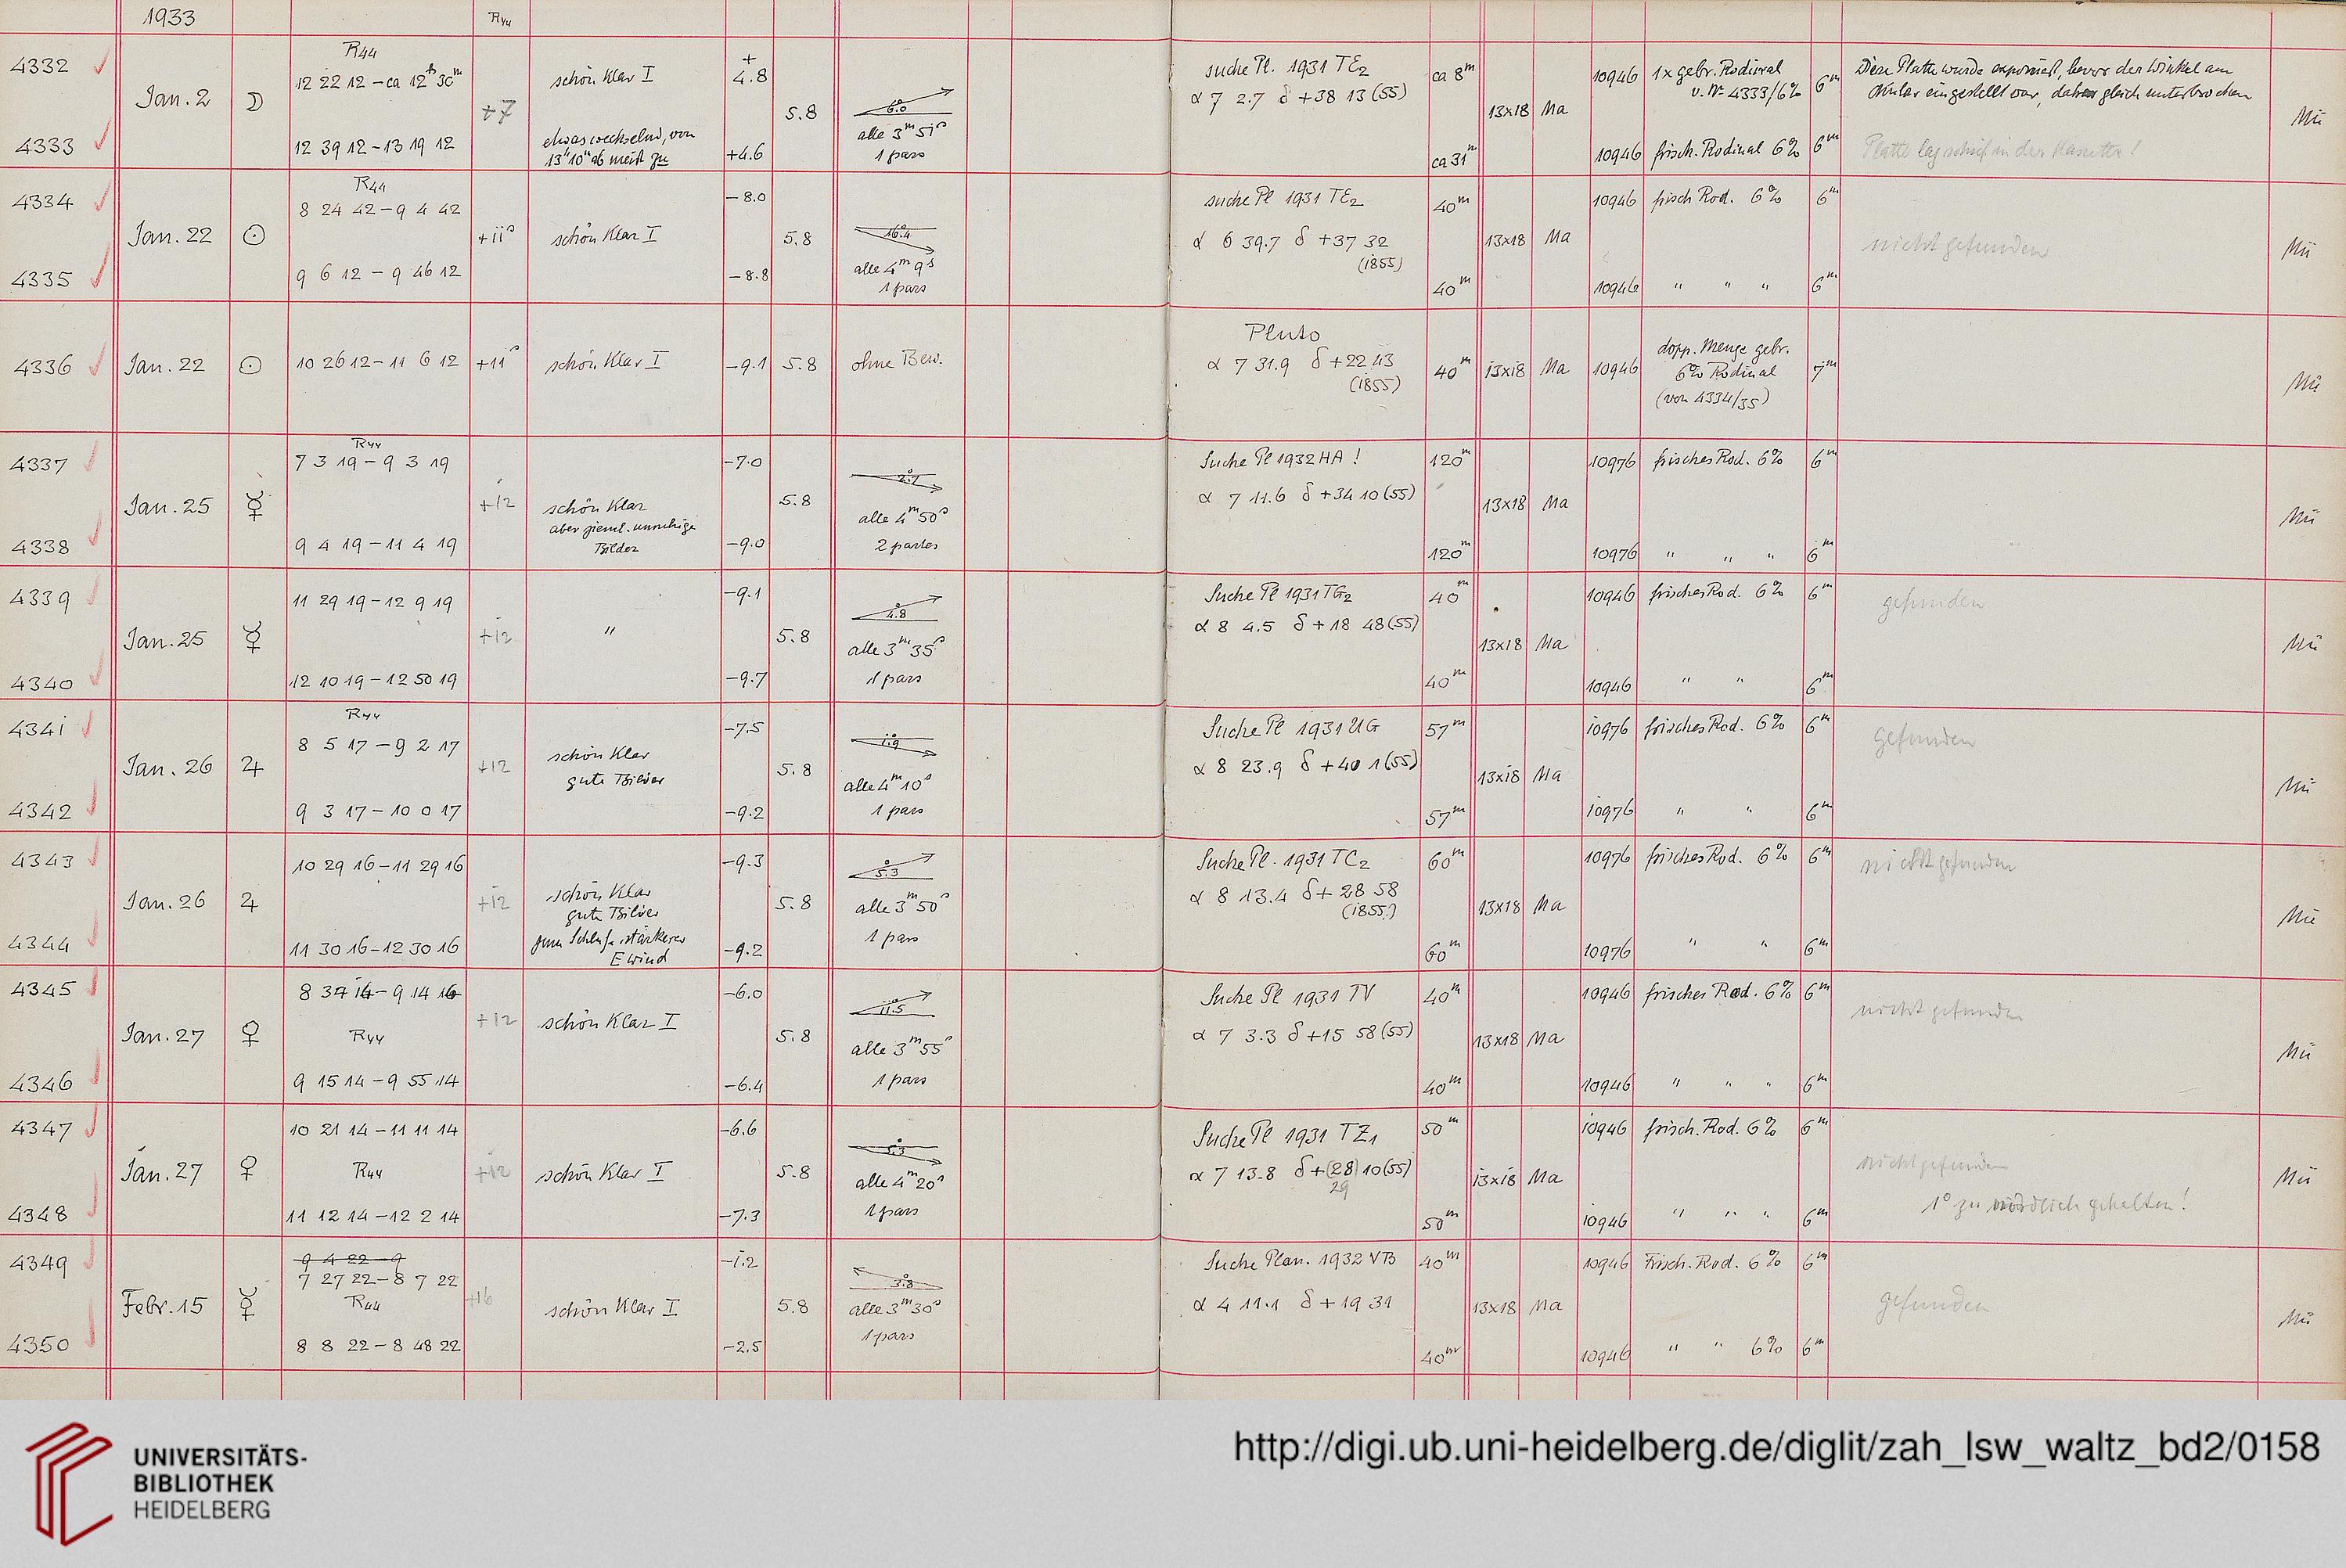 1933 R44
4332 Jan. 2 ☽ R44 12 22 12 – ca 12h 30m +7 schön klar I + 4.8 5.8 6.0 suche Pl. 1931 TE2 ca 8m 13x18 Ma 10946 1x gebr. Rodinal 6m Diese Platte wurde exponiert, bevor der Winkel am
α 7 2.7 δ +38 13 (55) v. Nr 4333/6% Okular eingestellt war, daher gleich unterbrochen Mü
4333 12 39 12 – 13 19 12 etwas wechselnd, von +4.6 alle 3m 51s ca 31m 10946 frisch. Rodinal 6% 6m Platte lag schief in der Kassette!
13h 10m ab meist zu 1 pars
4334 R44 8 24 42 – 9 4 42 –8.0 suche Pl 1931 TE2 40m 10946 frisch Rod. 6% 6m
Jan. 22 ☉ +11s schön klar I 5.8 16.4 α 6 39.7 δ +37 32 13x18 Ma nicht gefunden Mü
(1855)
4335 9 6 12 – 9 46 12 –8.8 alle 4m 9s 40m 10946 " " " 6m
1 pars
Pluto
4336 Jan. 22 ☉ 10 26 12 – 11 6 12 +11s schön klar I –9.1 5.8 ohne Bew. α 7 31.9 δ +22 43 40m 13x18 Ma 10946 dopp. Menge gebr. 7m Mü
(1855) 6% Rodinal
(von 4334/35)
4337 R44 7 3 19 – 9 3 19 –7.0 Suche Pl 1932 HA ! 120m 10976 frisches Rod. 6% 6m
Jan. 25 ☿ +12 schön klar 5.8 2.7 α 7 11.6 δ +34 10 (55) 13x18 Ma Mü
aber zieml. unruhige alle 4m 50s
4338 9 4 19 – 11 4 19 Bilder –9.0 2 partes 120m 10976 " " " 6m
4339 11 29 19 – 12 9 19 –9.1 Suche Pl 1931 TG2 40m 10946 frisches Rod. 6% 6m gefunden
Jan. 25 ☿ +12 " 5.8 4.8 α 8 4.5 δ +18 48 (55) 13x18 Ma Mü
alle 3m 35s
4340 12 10 19 – 12 50 19 –9.7 1 pars 40m 10946 " " 6m
4341 R44 8 5 17 – 9 2 17 –7.5 Suche Pl 1931 UG 57m 10976 frisches Rod. 6% 6m gefunden
Jan. 26 ♃ +12 schön klar 5.8 1.9 α 8 23.9 δ +40 1 (55) 13x18 Ma Mü
gute Bilder alle 4m 10s
4342 9 3 17 – 10 0 17 –9.2 1 pars 57m 10976 " " 6m
4343 10 29 16 – 11 29 16 –9.3 Suche Pl. 1931 TC2 60m 10976 frisches Rod. 6% 6m nicht gefunden
Jan. 26 ♃ +12 schön klar 5.8 5.3 α 8 13.4 δ +28 58 13x18 Ma Mü
gute Bilder alle 3m 50s (1855.)
4344 11 30 16 – 12 30 16 zum Schluss stärkerer –9.2 1 pars 60m 10976 " " 6m
E Wind
4345 8 34 14 – 9 14 14 –6.0 Suche Pl 1931 TV 40m 10946 frisches Rod. 6% 6m nicht gefunden
Jan. 27 ♀ R44 +12 schön klar I 5.8 11.5 α 7 3.3 δ +15 58 (55) 13x18 Ma Mü
alle 3m 55s
4346 9 15 14 – 9 55 14 –6.4 1 pars 40m 10946 " " " 6m
4347 10 21 14 – 11 11 14 –6.6 Suche Pl 1931 TZ1 50m 10946 frisch. Rod. 6% 6m
Jan. 27 ♀ R44 +12 schön klar I 5.8 5.3 α 7 13.8 δ +(28) 10 (55) 13x18 Ma nicht gefunden Mü
alle 4m 20s 29 1° zu nördlich gehalten!
4348 11 12 14 – 12 2 14 –7.3 1 pars 50m 10946 " " " 6m
4349 9 4 22 – 9 –1.2 Suche Plan. 1932 VB 40m 10946 Frisch. Rod. 6% 6m
7 27 22 – 8 7 22
Febr. 15 ☿ R44 +16 schön klar I 5.8 3.8 α 4 11.1 δ +19 31 13x18 Ma gefunden Mü
alle 3m 30s
4350 8 8 22 – 8 48 22 –2.5 1 pars 40m 10946 " " 6% 6m
UNIVERSITÄTS-
BIBLIOTHEK
HEIDELBERG
http://digi.ub.uni-heidelberg.de/diglit/zah_lsw_waltz_bd2/0158